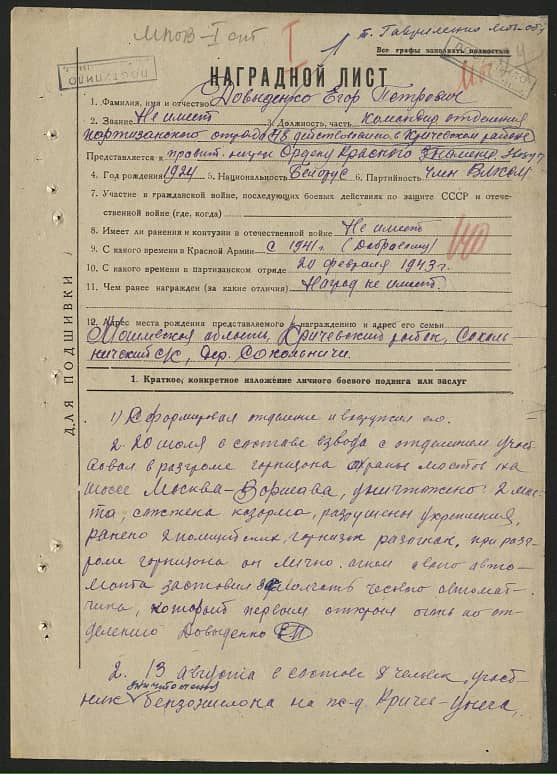 МПОВ-I
I
т. Гавриленко
Все графы заполнять полностью
ПОСТУПИЛО
НАГРАДНОЙ ЛИСТ
1. Фамилия, имя и отчество Довыденко Егор Петрович
2. Звание Не имеет 3. Должность, часть Командир отделения
партизанского отряда действовавшего в Кричевском районе
Представляется к правит. награде Ордену Красного Знамени
4. Год рождения 1924 5. Национальность Белорус 6. Партийность член ВЛКСМ
7. Участие в гражданской войне, последующих боевых действиях по защите СССР и отече-
ственной войне (где, когда)
8. Имеет ли ранения и контузии в отечественной войне Не имеет
9. С какого времени в Красной Армии С 1941г.
10. С какого времени в партизанском отряде 20 февраля 1943г.
11. Чем ранее награжден (за какие отличия) Наград не имеет.
12. Адрес места рождения представляемого к награждению и адрес его семьи
Могилевская область, Кричевский район, Соколь-
ничский с/с, дер. Сокольничи.
ДЛЯ ПОДШИВКИ
1. Краткое, конкретное изложение личного боевого подвига или заслуг
1) Сформировал отделение и вооружил его.
2. 20 июля в составе взвода с отделением участ-
вовал в разгроме гарнизона охраны мостов на
шоссе Москва-Варшава, уничтожено 2 мос-
та, сожжена казарма, разрушены укрепления,
ранено 2 полицейских, гарнизон разогнан, при разг-
роме гарнизона он лично огнем своего авто-
мата заставил замолчать часового автомат-
чика, который первым открыл огонь по от-
делению Довыденко ЕП
2. 13 августа в составе 8 человек, участ-
ник уничтожения бензоцистерн на ж-д Кричев-Унеча,